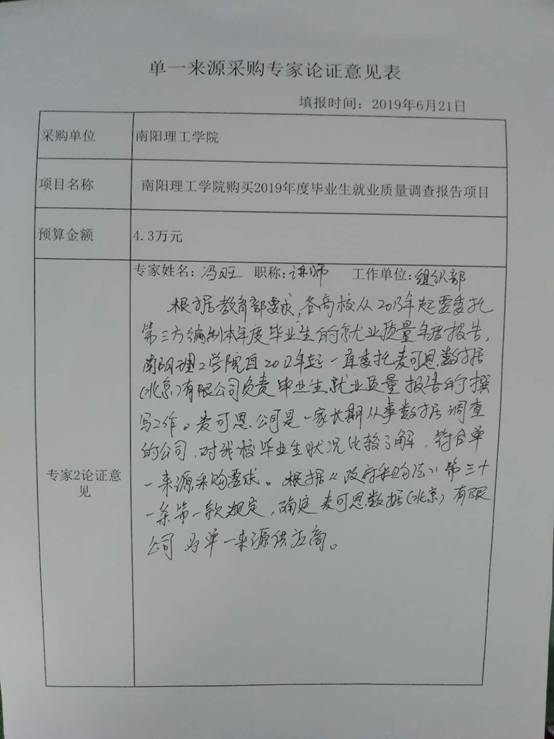 单一来源采购专家论证意见表
填报时间：2019年6月21日
采购单位 南阳理工学院
项目名称 南阳理工学院购买2019年度毕业生就业质量调查报告项目
预算金额 4.3万元
专家姓名：冯旺 职称：讲师 工作单位：组织部
根据教育部要求，各高校从2013年起要委托
第三方编制本年度毕业生的就业质量年度报告，
南阳理工学院自2012年起一直委托麦可思数据
（北京）有限公司负责毕业生就业质量报告的撰
写工作。麦可思公司是一家长期从事数据调查
的公司，对我校毕业生状况比较了解，符合单
一来源采购要求。根据《政府采购法》第三十
一条第一款规定，确定麦可思数据（北京）有限
公司为单一来源供应商。
专家2论证意
见